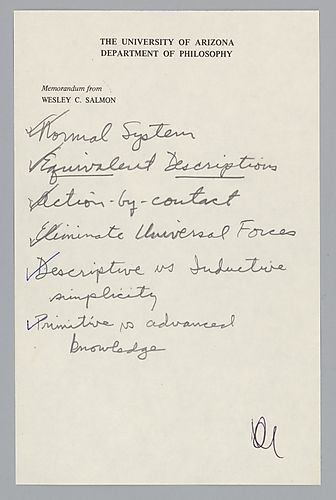 THE UNIVERSITY OF ARIZONA
DEPARTMENT OF PHILOSOPHY
Memorandum from
WESLEY C. SALMON
Normal System
Equivalent Descriptions
Action-by-contact
Eliminate Universal Forces
Descriptive vs Inductive
simplicity
Primitive vs advanced
knowledge